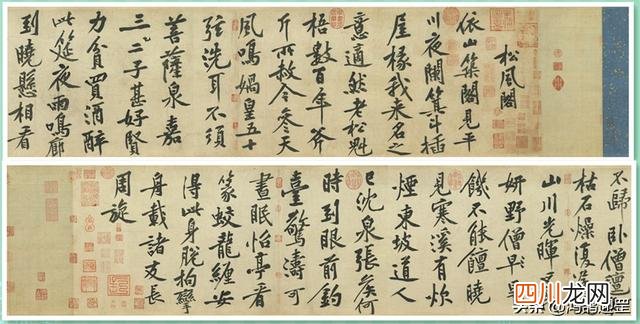 松風閣
依山築閣見平
川夜闌箕斗插
屋椽我來名之
意適然老松魁
梧數百年斧
斤所赦今參天
風鳴媧皇五十
弦洗耳不須
菩薩泉嘉
三二子甚好賢
力貧買酒醉
此筵夜雨鳴廊
到曉懸相看
不歸臥僧氈
枯石燥復潺
山川光暉
妍野僧旱
饑不能饘曉
見寒溪有炊
煙東坡道人
已沈泉張侯何
時到眼前釣
臺驚濤可
晝眠怡亭看
篆蛟龍纏安
得此身脫拘攣
舟載諸友長
周旋
四川龙网